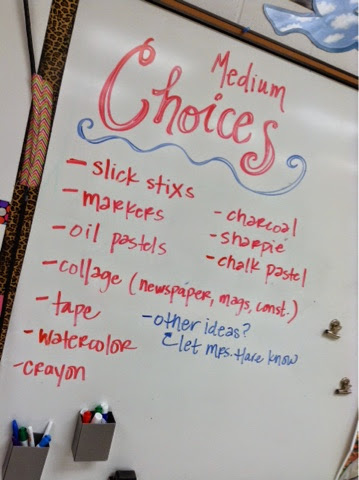 Medium
Choices
- slick stixs
- markers
- oil pastels
- collage (newspaper, mags, const.)
- tape
- watercolor
- crayon
- charcoal
- sharpie
- chalk pastel
- other ideas?
let Mrs. Hare know